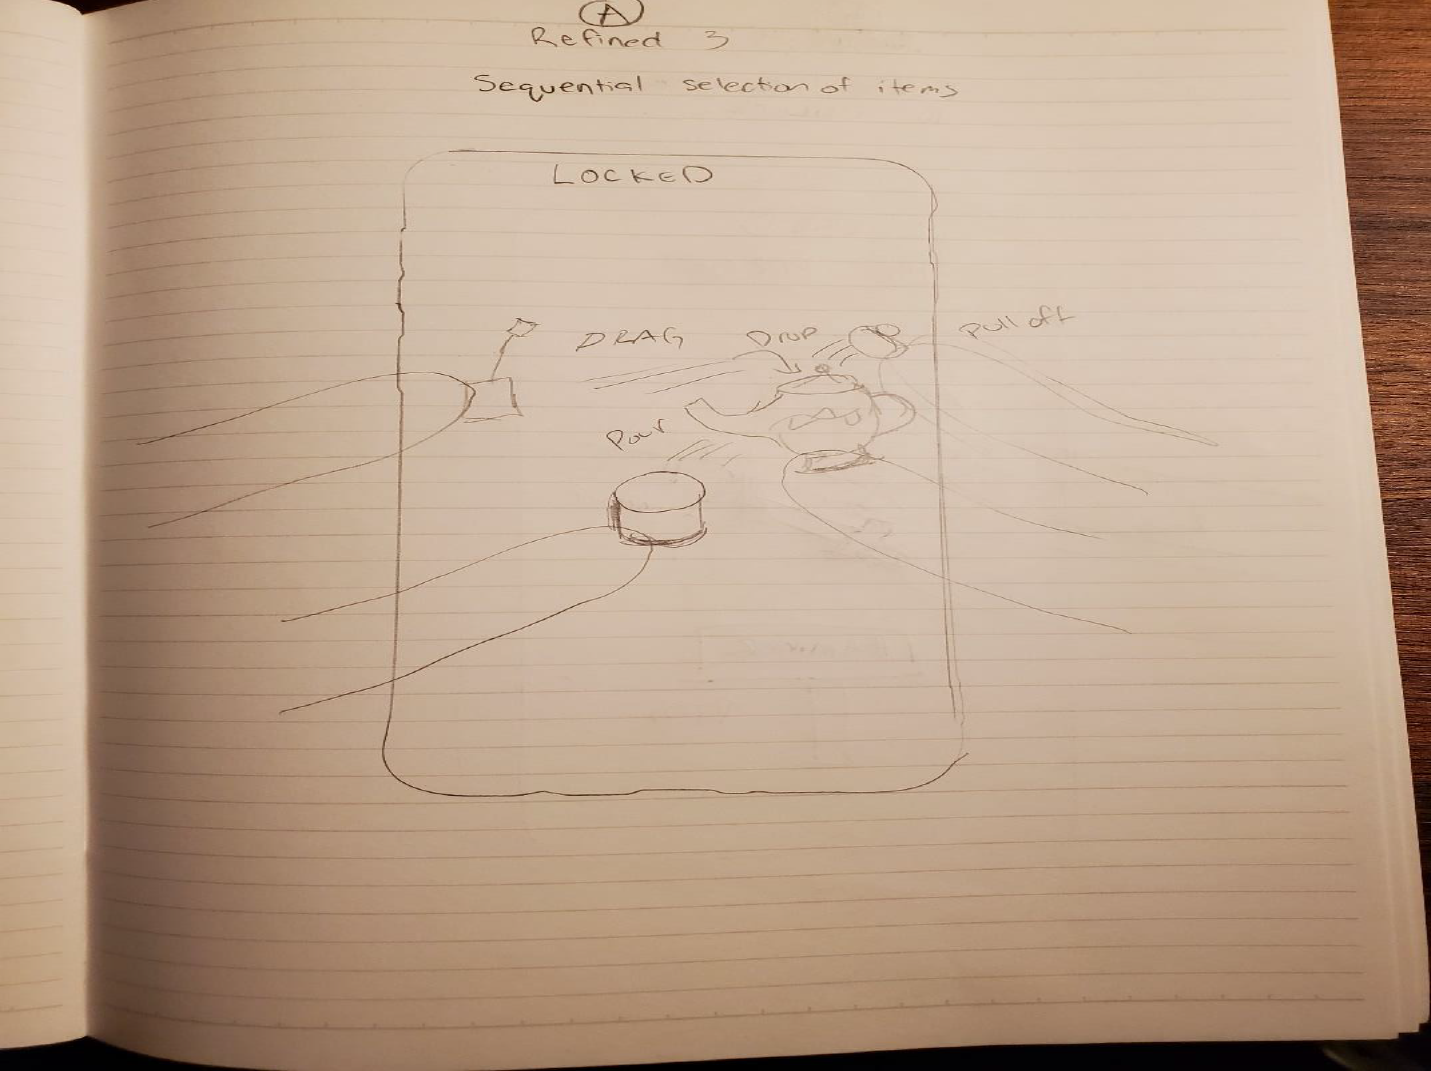 A
Refined 3
Sequential selection of items
LOCKED
DRAG
Drop
Pull off
Pour